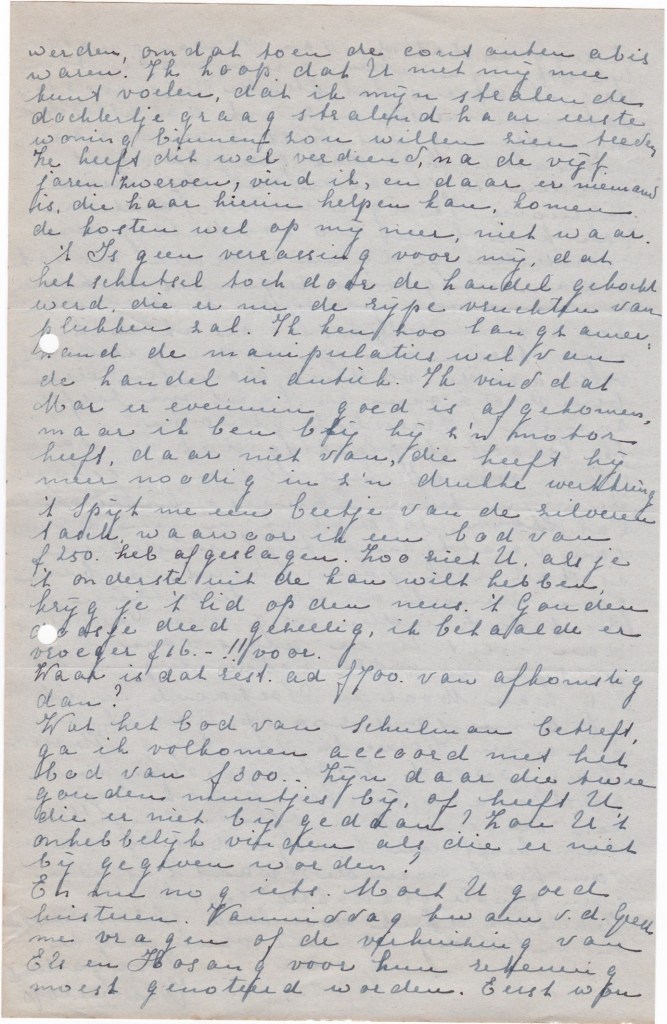 werden, omdat toen de contanten abis
waren. Ik hoop, dat U met mij mee
kunt voelen, dat ik mijn stralende
dochtertje graag stralend haar eerste
woning binnen zou willen zien treden
Ze heeft dit wel verdiend, na de vijf
jaren zwerven, vind ik, en daar er niemand
is, die haar hierin helpen kan, komen
de kosten wel op mij neer, niet waar.
't Is geen verrassing voor mij, dat
het schutsel toch door de handel gekocht
werd, die er nu de rijpe vruchten van
plukken zal. Ik ken zoo langzamer-
hand de manipulaties wel van
de handel in antiek. Ik vind dat
Mar er evenmin goed is afgekomen,
maar ik ben blij hij z'n motor
heeft, daar niet van, die heeft hij
meer noodig in z'n drukke werkkring
't Spijt me een beetje van de zilveren
tasch, waarvoor ik een bod van
f 250. heb afgeslagen. Zoo ziet U, als je
't onderste uit de kan wilt hebben,
krijg je 't lid op den neus. 't Gouden
doosje deed geheelig, ik betaalde er
vroeger f 16.- !! voor.
Waar is dat rest. ad f 700. van afkomstig
dan?
Wat het bod van Schulman betreft,
ga ik volkomen accoord met het
bod van f 300.. Zijn daar die twee
gouden muntjes bij, of heeft U
die er niet bij gedaan? Zou U 't
onhebbelijk vinden als die er niet
bij gegeven worden?
En nu nog iets. Moet U goed
luisteren. Vanmiddag kwam v. d.
me vragen of de verhuizing van
Els en Hosang voor hun rekening
moest genoteerd worden. Eerst won